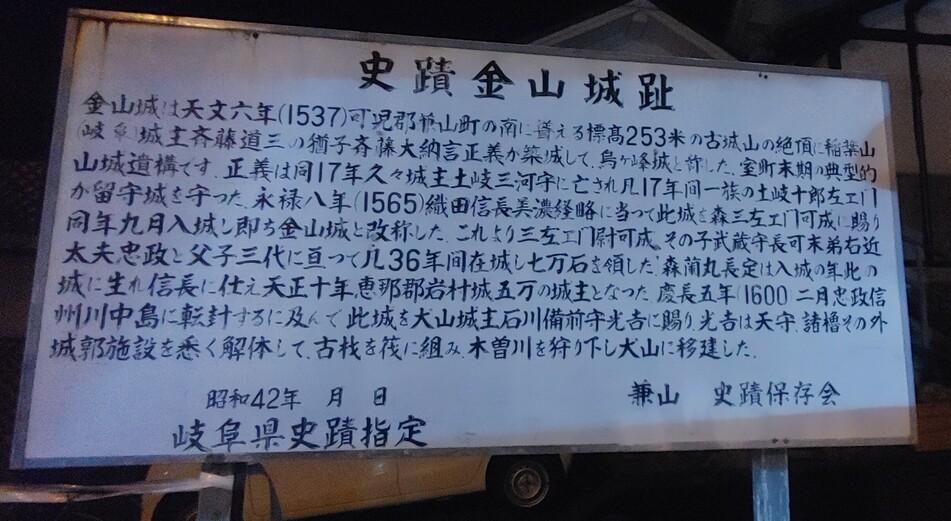 史蹟金山城趾
金山城は天文六年(1537)可児郡兼山町の南に聳える標高253米の古城山の絶頂に稲葉山
(岐阜)城主斉藤道三の猶子斉藤大納言正義が築城して、烏ヶ峰城と許した、室町末期の典型的
山城遺構です、正義は同17年久々城主土岐三河守に亡され凡17年間一族の土岐十郎左エ門
が留守城を守つた、永禄八年(1565)織田信長美濃経略に当つて此城を森三左エ門可成に賜り
同年九月入城し即ち金山城と改称した、これより三左エ門尉可成、その子武蔵守長可末弟右近
太夫忠政と父子三代に亘つて凡36年間在城し七万石を領した、森蘭丸長定は入城の年此の
城に生れ信長に仕え天正十年恵那郡岩村城五万の城主となつた、慶長五年(1600)二月忠政信
州川中島に転封するに及んで此城を犬山城主石川備前守光吉に賜り、光吉は天守、諸櫓その外
城郭施設を悉く解体して、古材を筏に組み、木曽川を狩り下し犬山に移建した、
昭和42年 月 日 兼山 史蹟保存会
岐阜県史蹟指定